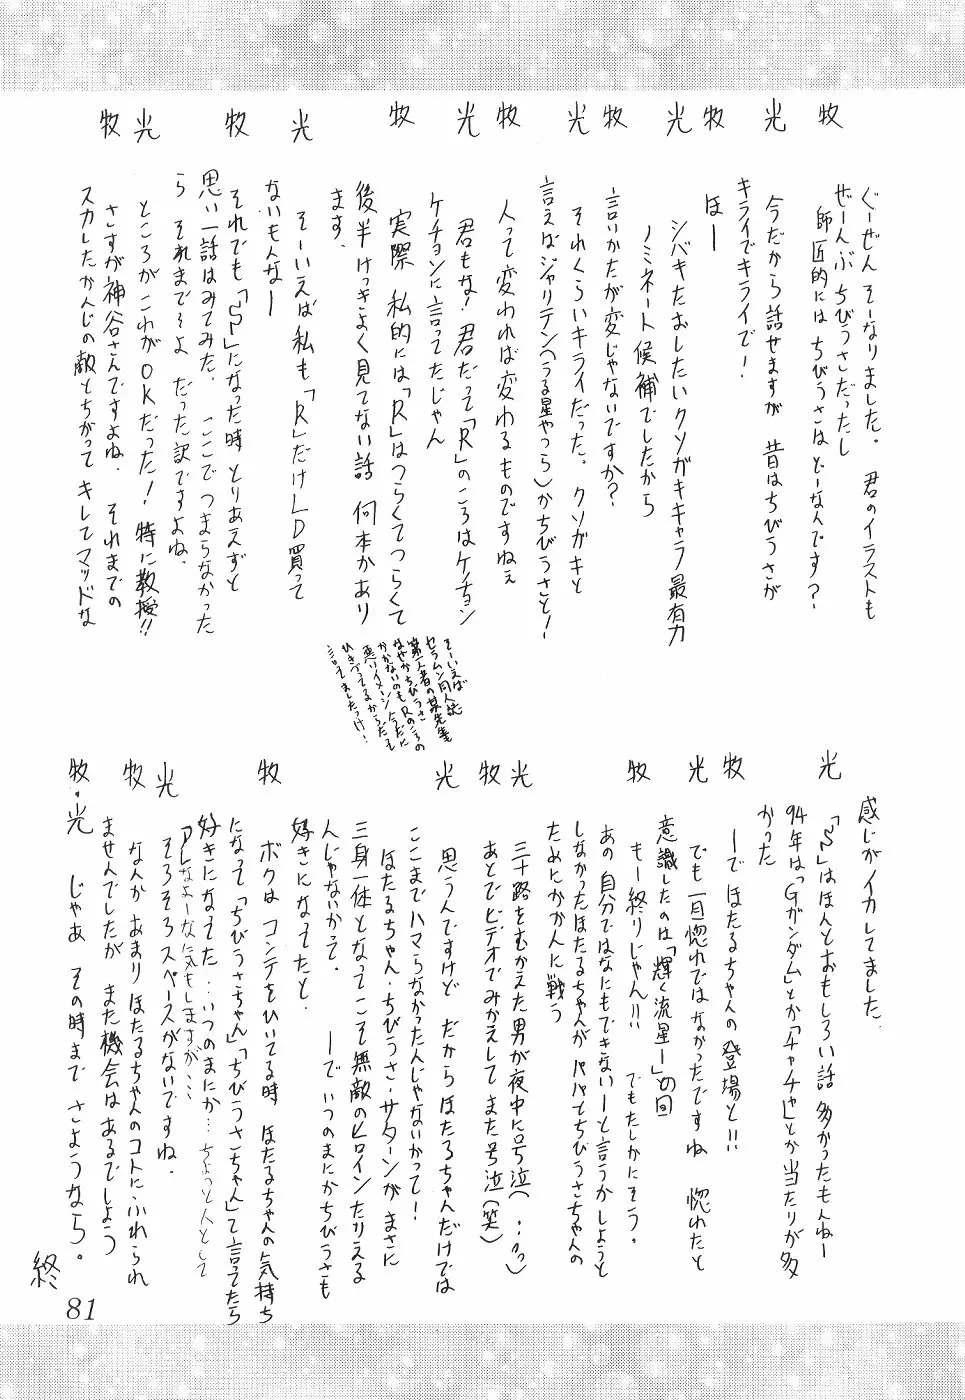 ぐーぜんそーなりました。 君のイラストも
ぜーんぶちびうさだったし
牧 師匠的にはちびうさはどーなんです?
光 今だから話せますが 昔はちびうさが
キライでキライで!
牧 ほー
光 シバキたおしたいクソガキキャラ最有力
ノミネート候補でしたから
牧 言いかたが変じゃないですか?
光 それくらいキライだった。クソガキと
言えばジャリテン(うる星やつら)かちびうさと!
牧 人って変われば変わるものですねぇ
光 君もな!君だって「R」のころはケチョン
ケチョンに言ってたじゃん
牧 実際 私的には「R」はつらくてつらくて
後半けっきょく見てない話 何本かあり
ます。
光 そーいえば私も「R」だけLD買って
ないもんなー
牧 それでも「S」になった時とりあえずと
思い一話はみてみた。 ここでつまらなかった
ら それまでそよ だった訳ですよね。
光 ところがこれがOKだった!特に教授!!
牧 さすが神谷さんですよね。 それまでの
スカしたかんじの敵とちがってキレてマッドな
そーいえば
セラムン同人誌
第一人者の某先生も
なぜかちびうさ
かかないのもRのころの
悪いイメージ 今だに
ひきづってるからだと
言ってましたっけ!
感じがイカしてました
光 「S」はほんとおもしろい話 多かったもんねー
94年は「Gガンダム」とか「チャチャ」とか当たりが多
かった
牧 ーでほたるちゃんの登場と!!
光 でも一目惚れではなかったですね 惚れたと
意識したのは「輝く流星ー」の回
牧 もー終りじゃん!! でもたしかにそう。
あの自分ではなにもできないーと言うかしようと
しなかったほたるちゃんが パパとちびうさちゃんの
ためにかかんに戦う
光 三十路をむかえた男が夜中に号泣(…っっ)
牧 あとでビデオでみかえしてまた号泣(笑)
光 思うんですけど だからほたるちゃんだけでは
ここまでハマらなかったんじゃないかって!
ほたるちゃん・ちびうさ・サターンが まさに
三身一体となってこそ無敵のヒロインたりえる
んじゃないかって。 ーで いつのまにかちびうさも
好きになってたと
牧 ボクは コンテをひいてる時 ほたるちゃんの気持ち
になって「ちびうさちゃん」「ちびうさちゃん」て言ってたら
好きになってた…いつのまにか…ちょっと人として
アレなよーな気もしますが…
光 そろそろスペースがないですね。
牧 なんか あまり ほたるちゃんのコトにふれられ
ませんでしたが また機会はあるでしょう
牧・光 じゃあ その時まで さようなら。
終
81